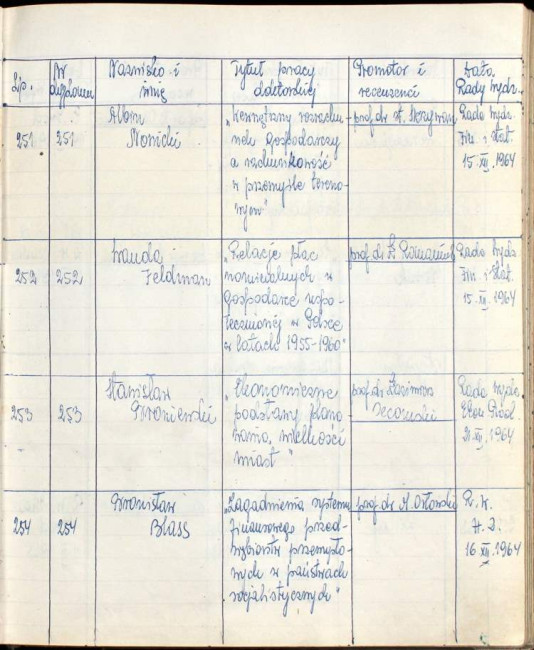 Lp.
Nr
dyplomu
Nazwisko i
imię
Tytuł pracy
doktorskiej
Promotor i
recenzenci
Rady Wydz.
251
251
Albin
Nowicki
„Wewnętrzny rozrachu-
nek gospodarczy
a rachunkowość
w przemyśle tereno-
wym"
prof. dr St. Skrzywan
Rada Wydz.
Fin. i Stat.
15.XII.1964
252
252
Wanda
Feldman
„Relacje płac
nominalnych w
gospodarce uspo-
łecznionej w Polsce
w latach 1955-1960"
prof. dr
Rada Wydz.
Fin. i Stat.
15.XII.1964
253
253
Stanisław
Broniewski
„Ekonomiczne
podstawy plano-
wania wielkości
miast"
prof. dr Kazimierz
Secomski
Rada Wydz.
21.XII.1964
254
254
Bronisław
Blass
„Zagadnienia systemu
finansowego przed-
siębiorstw przemysło-
wych w państwach
socjalistycznych"
prof. dr M. Orłowski
R. W.
16.XII.1964